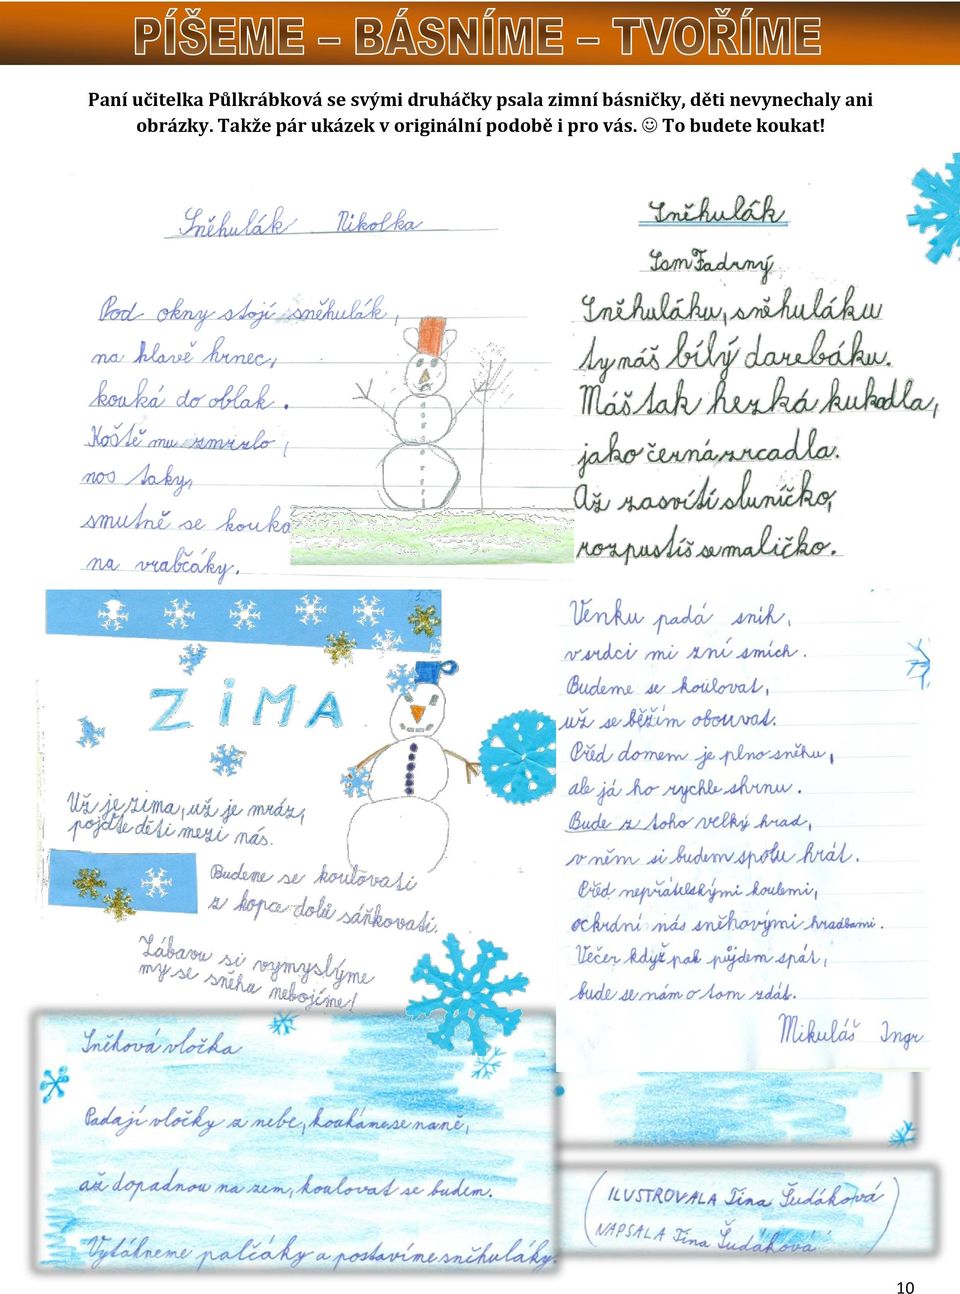 PÍŠEME – BÁSNÍME – TVOŘÍME
Paní učitelka Půlkrábková se svými druháčky psala zimní básničky, děti nevynechaly ani
obrázky. Takže pár ukázek v originální podobě i pro vás. ☺ To budete koukat!
Sněhulák Nikolka
Pod okny stojí sněhulák,
na hlavě hrnec,
kouká do oblak.
Koště mu zmrzlo,
nos taky,
smutně se kouka
na vrabčáky.
Sněhulák
Sam Fadrný
Sněhuláku, sněhuláku
ty náš bílý darebáku.
Máš tak hezká kukadla,
jako černá zrcadla.
Až zasvítí sluníčko,
rozpustíš se maličko.
ZIMA
Už je zima, už je mráz,
pojďte děti mezi nás.
Budeme se koulovati
z kopce dolů sáňkovati.
Zábavu si vymyslýme
my se sněhu nebojíme!
Venku padá sníh,
v srdci mi zní smích.
Budeme se koulovat,
už se běžím obouvat.
Před domem je plno sněhu,
ale já ho rychle shrnu.
Bude z toho velký hrad,
v něm si budem spolu hrát.
Před nepřátelskými koulemi,
ochrání nás sněhovými hradbami.
Večer když pak půjdem spát,
bude se nám o tom zdát.
Mikuláš Ingr
Sněhová vločka
Padají vločky z nebe, koukáme se na ně,
až dopadnou na zem, koulovat se budem.
Vytáhneme palčáky a postavíme sněhuláky.
(ILUSTROVALA Tina Šudáková)
NAPSALA Tina Šudáková
10